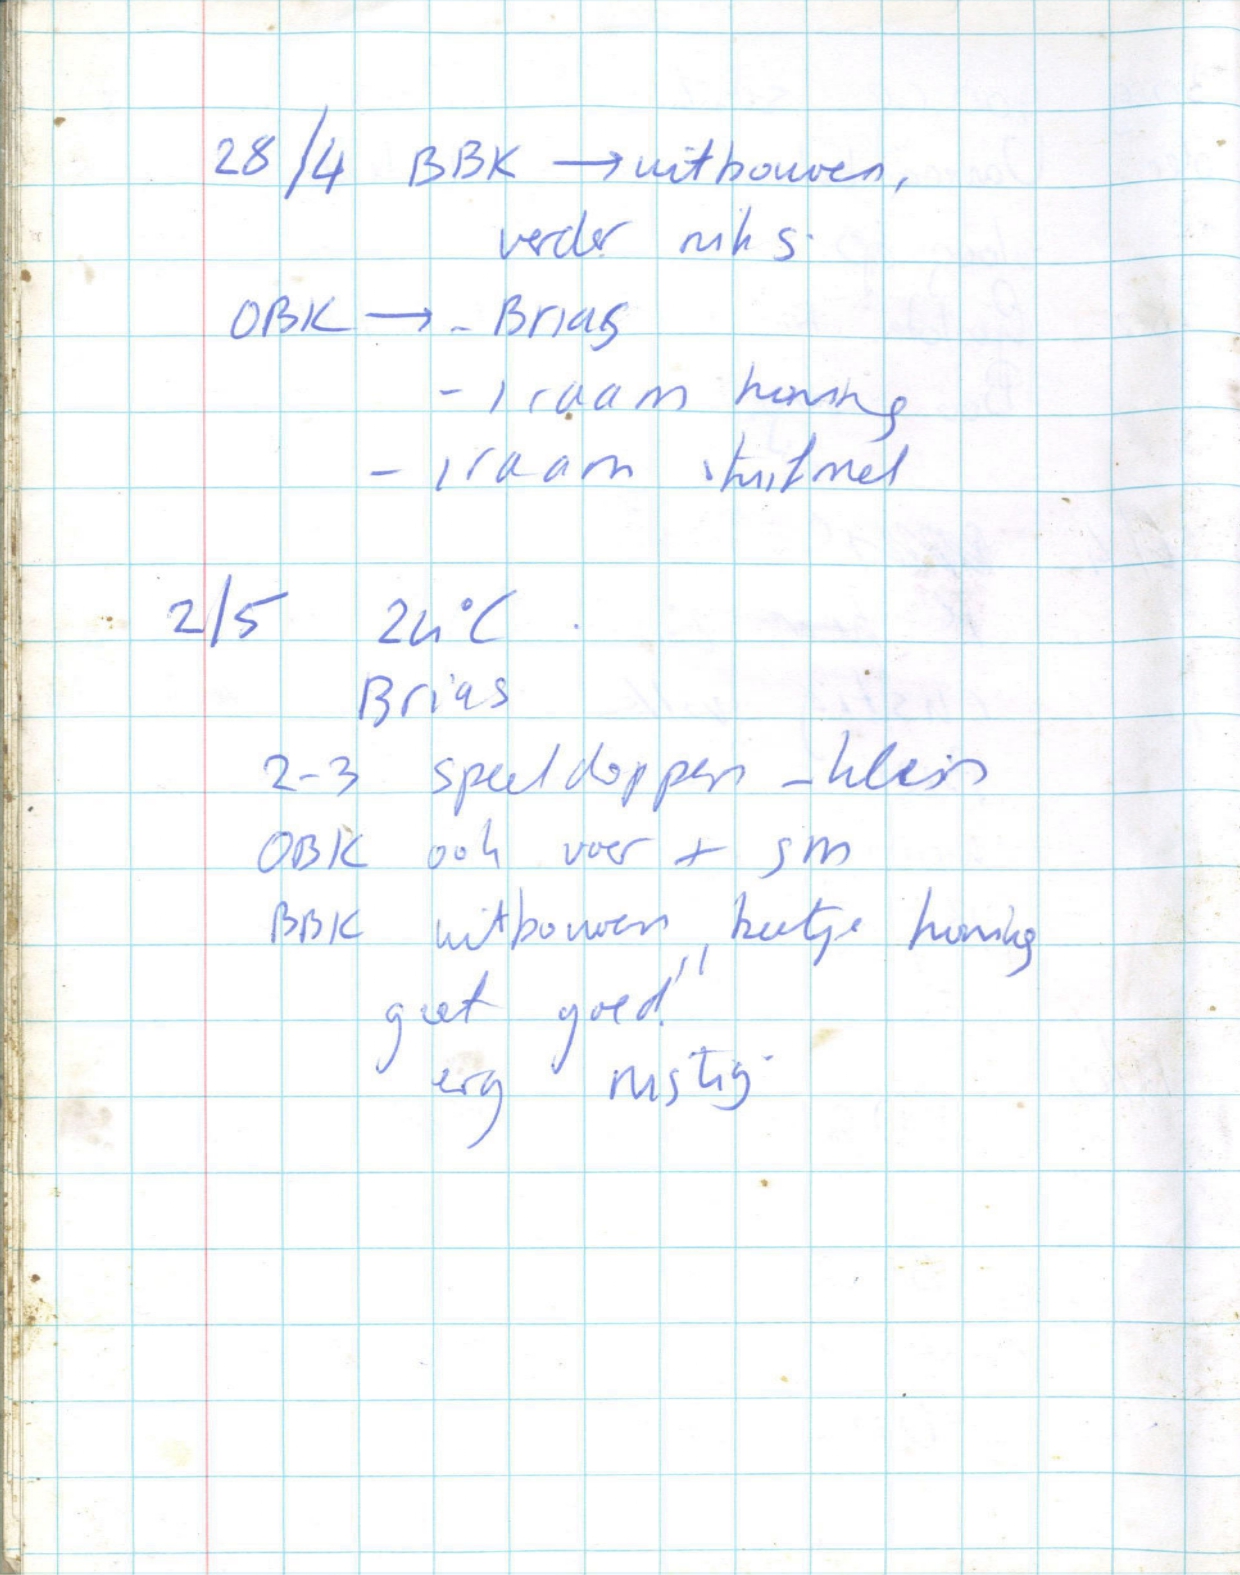 28/4 BBK → uitbouwen,
verder niks.
OBK → - Brias
- 1 raam honing
- 1 raam stuifmeel
2/5 24°C
Brias
2-3 speeldoppen - klein
OBK ook voer + sm
BBK uitbouwen, beetje honing
gaat goed!!
erg rustig.